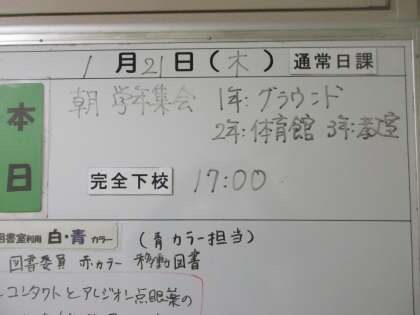 1月21日(木) 通常日課
本日
朝 学年集会 1年:グラウンド
2年:体育館 3年:教室
完全下校 17:00
図書室利用 白・青カラー (青カラー担当)
図書委員 赤カラー 移動図書
コンタクトとアレジオン点眼薬の